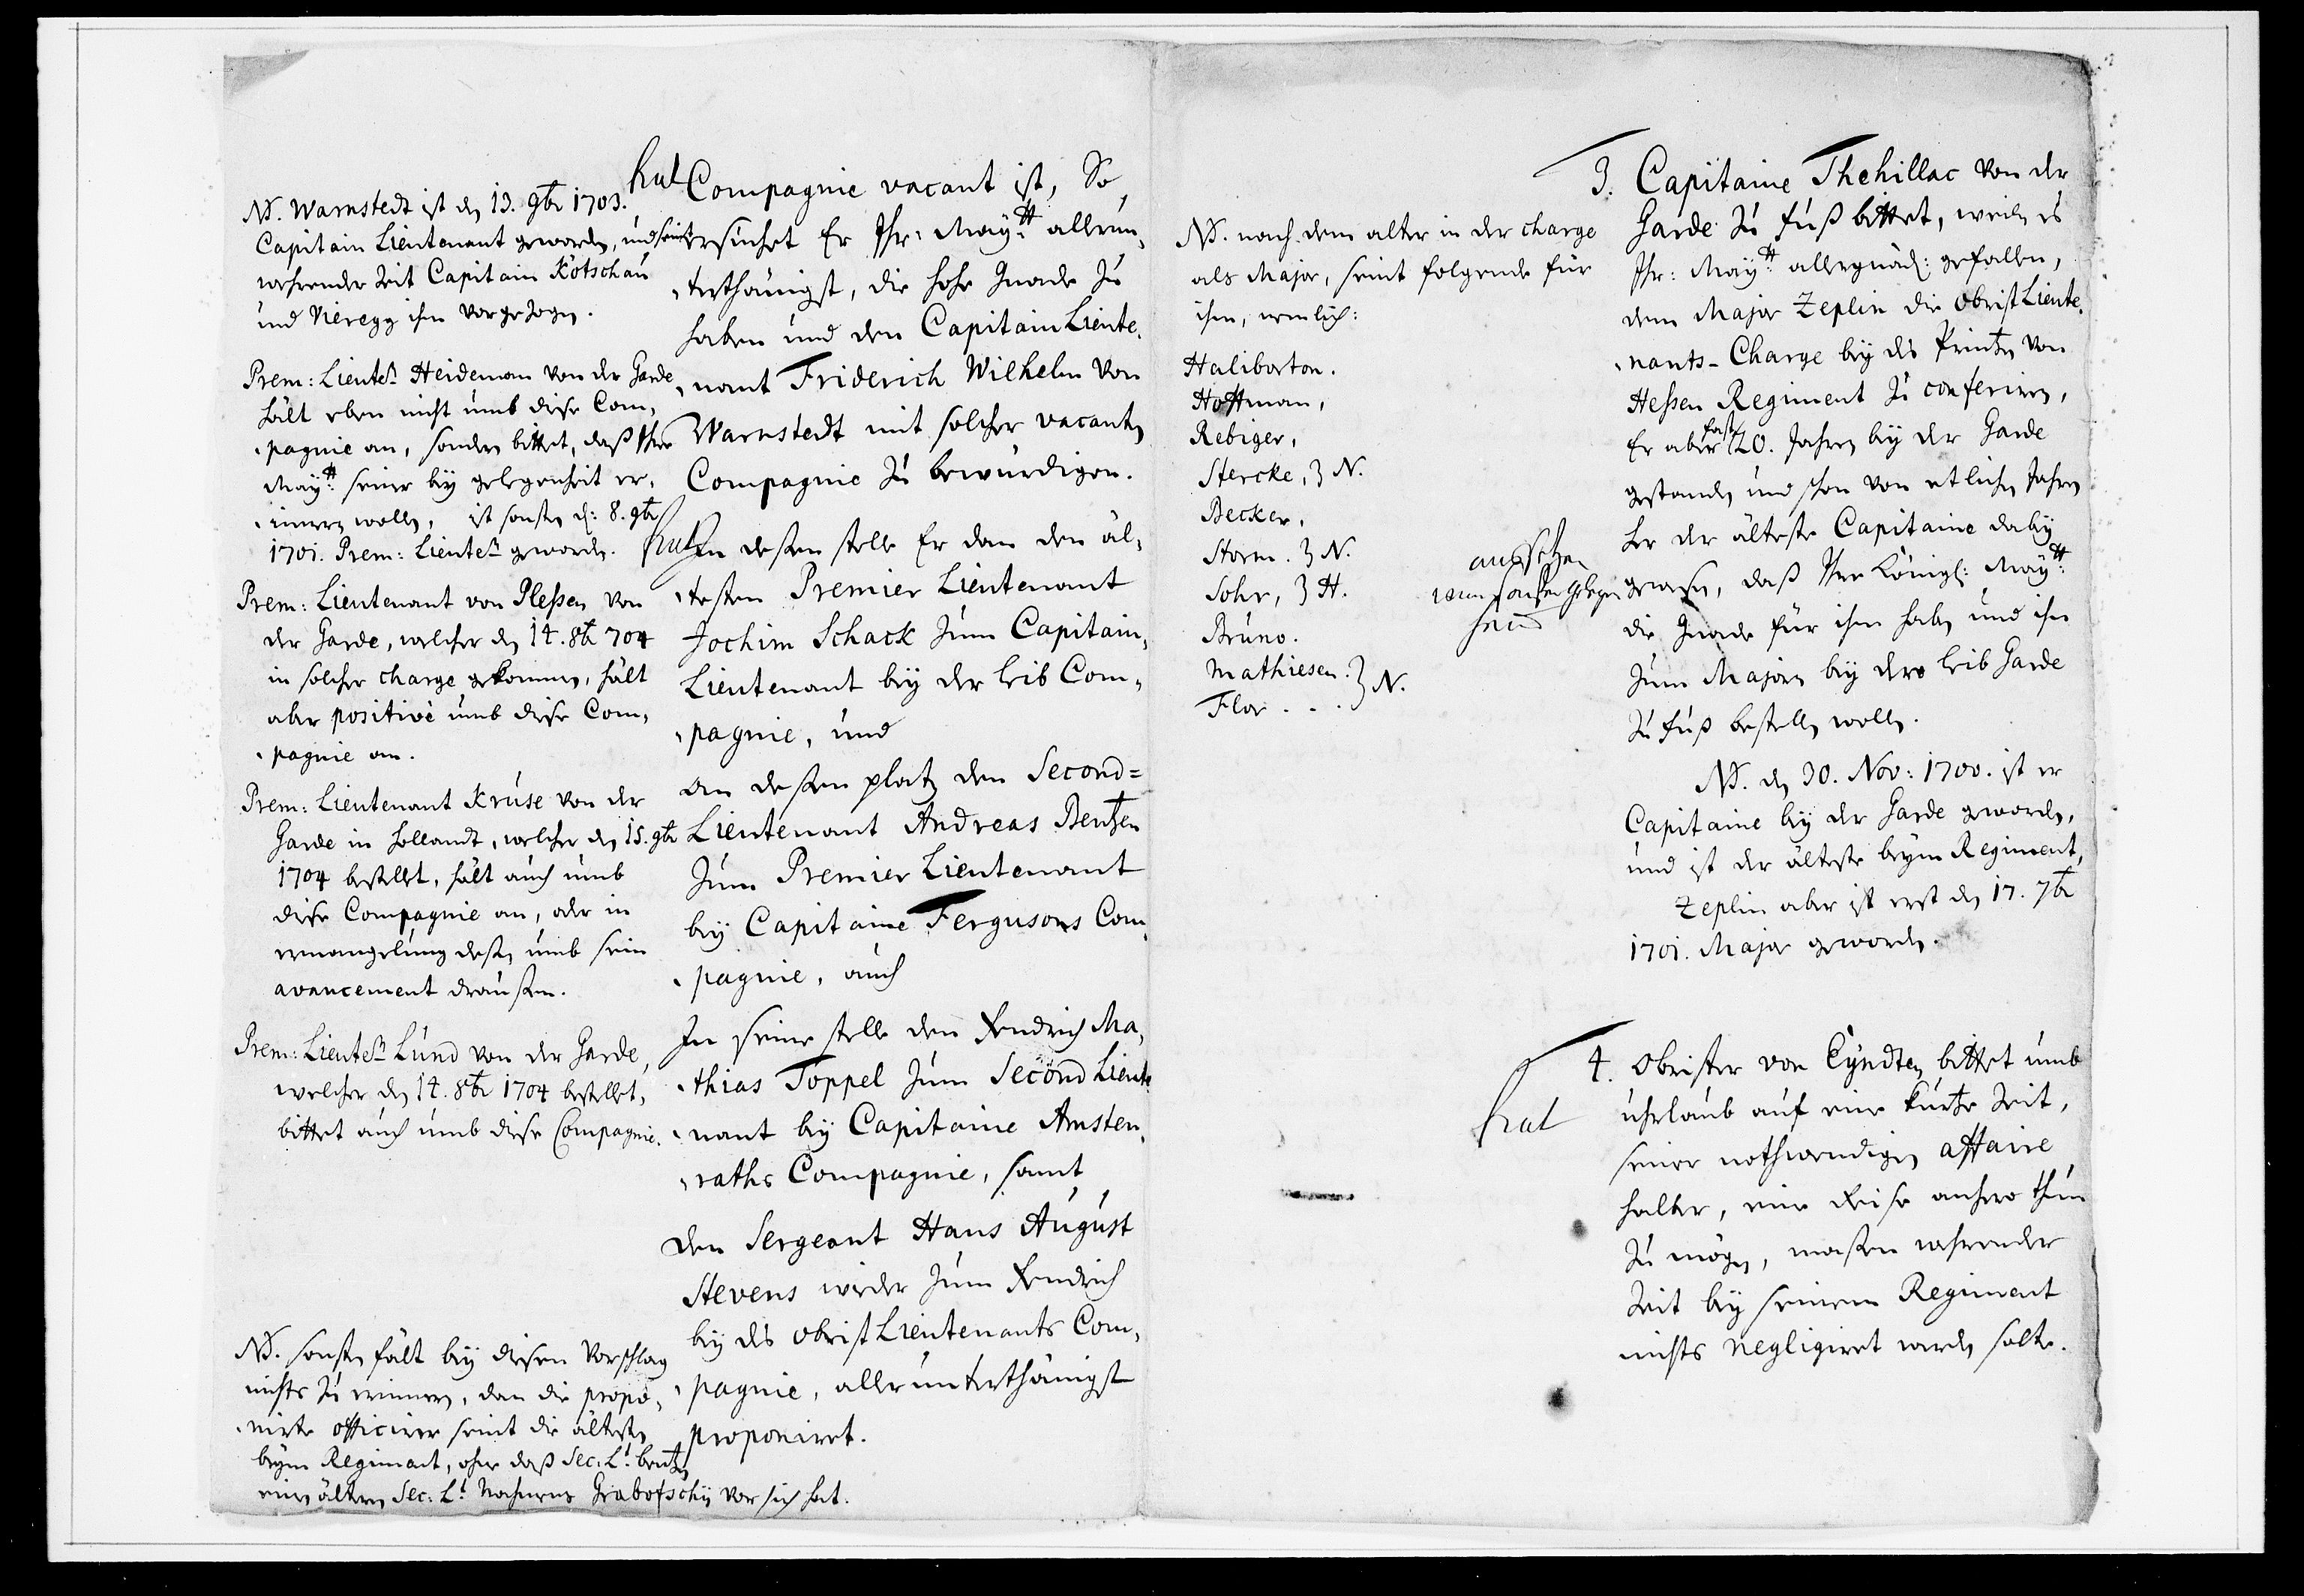 NB. Warnstedt ist den 13. 9br 1703.
Capitain Lieutenant geworden, und seint
wehrender Zeit Capitain Kötschau
und Vieregg ihm vorgezogen.
Prem: Lieutent Heideman von der Garde
hält eben nicht umb diese Com-
pagnie an, sondern bittet, daß Ihre
Maytt: seiner bey gelegenheit er-
inneren wollen, ist sonsten d: 8. 9br
1701. Prem: Lieutent geworden.
Prem: Lieutenant von Plessen von
der Garde, welcher den 14. 8br 704
in solcher charge gekommen, hält
aber positivè umb diese Com-
pagnie an.
Prem: Lieutenant Kruse von der
Garde in Hollandt, welcher den 15. 9br
1704 bestellet, hält auch umb
diese Compagnie an, oder in
ermangelung dessen umb sein
avancement draussen.
Prem: Lieutent Lund von der Garde,
welcher den 14. 8br 1704 bestellet,
bittet auch umb diese Compagnie.
NB. sonsten fält bey diesen Vorschlag
nichts zu erinnern, dan die propo-
nirte officirer seint die ältesten
beym Regiment, ohne daß Sec: Lt. Bentzen
einen ältern Sec: Lt. Nahmens Grabofschy vor sich hat.
hat
Compagnie vacant ist, So
ersuchet Er Ihr: Maytt: allerun-
terthänigst, die hohe Gnade zu
haben und den Capitain Lieute-
nant Friderich Wilhelm von
Warnstedt mit solcher vacanten
Compagnie zu bewürdigen.
hat
In dessen stelle Er dan den äl-
testen Premier Lieutenant
Jochim Schack zum Capitain-
Lieutenant bey der leib Com-
pagnie, und
an dessen platz den Second=
Lieutenant Andreas Bentzen
zum Premier Lieutenant
bey Capitaine Fergusons Com-
pagnie, auch
In seine stelle den Fendrich Ma-
thias Toppel zum Second Lieute-
nant bey Capitaine Amsten-
raths Compagnie, samt
den Sergeant Hans August
Stevens wieder zum Fendrich
bey des Obrist Lieutenants Com-
pagnie, allerunterthänigst
proponiret.
NB. nach dem alter in der charge
als Major, seint folgende für
ihm, nemlich:
Haliborton.
Hoffman,
Rebiger,
Stercke, } N.
Becker,
Storm. } N.
Sohr, } H.
Bruno.
Mathiesen. } N.
Flor . . .
3. Capitaine Thehillac von der
Garde zu fuß bittet, weilen es
Ihr: Maytt: allergnäd: gefallen,
dem Major Zeplin die Obrist Lieute-
nants-Charge bey des Printzen von
Hessen Regiment zu conferiren,
Er aber fast 20. Jahren bey der Garde
gestanden und schon von etlichen Jahren
her der älteste Capitaine dabey
gewesen, daß Ihre Königl: Maytt:
die Gnade für ihm haben und ihn
zum Majoren bey dero leib Garde
zu fuß bestellen wollen.
NB. den 30. Nov: 1700. ist er
Capitaine bey der Garde geworden,
und ist der älteste beym Regiment,
Zeplin aber ist erst den 17. 7br
1701. Major geworden.
hat
4. Obrister von Eyndten bittet umb
uhrlaub auf eine kurtze Zeit,
seiner nothwendigen affaire
halber, eine Reise anhero thun
zu mögen, massen wehrender
Zeit bey seinem Regiment
nichts negligiret werden solte.